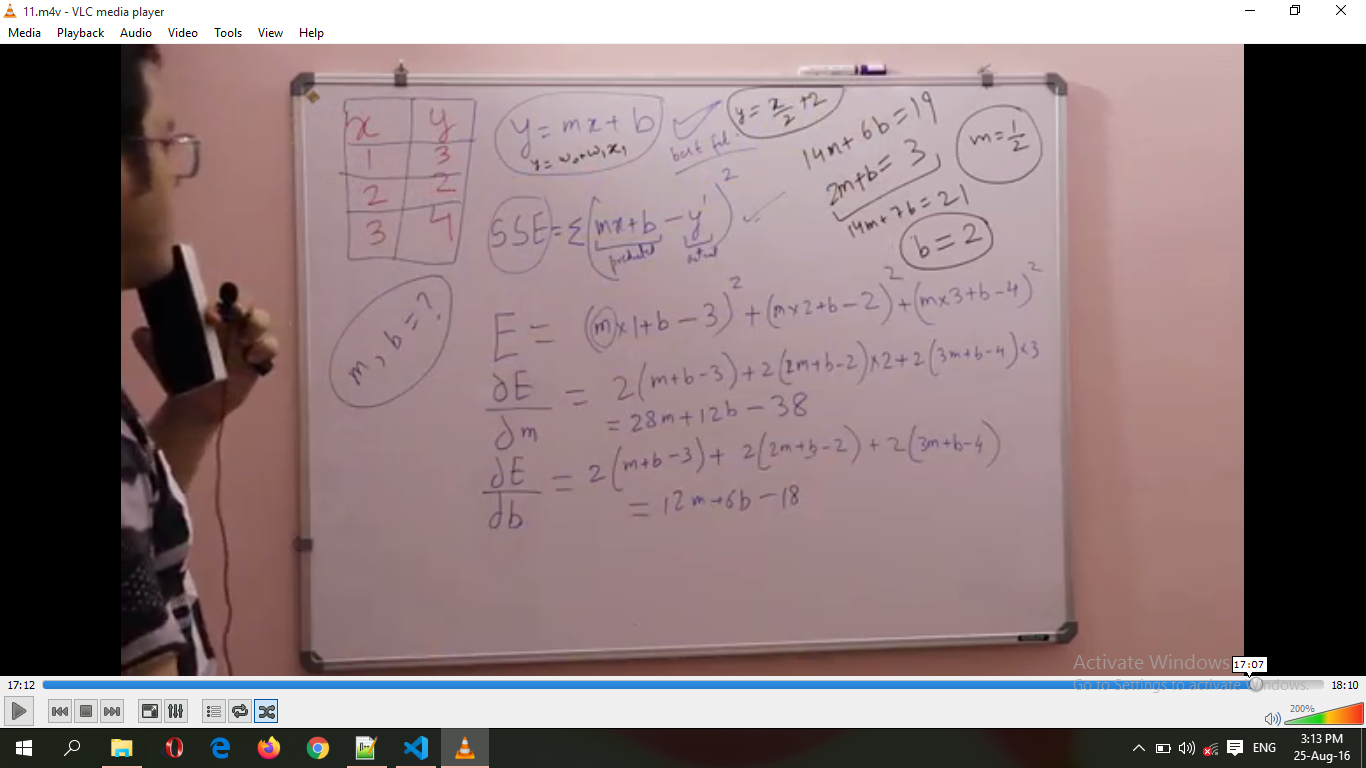 11.m4v - VLC media player
Media Playback Audio Video Tools View Help
x y
1 3
2 2
3 4
y = mx + b
y = w₀ + w₁x₁
best
y = x/2 + 2
14m + 6b = 19
2m + b = 3
14m + 7b = 21
m = 1/2
b = 2
SSE = Σ(mx + b - y')²
predicted actual
m, b = ?
E = (m×1 + b - 3)² + (m×2 + b - 2)² + (m×3 + b - 4)²
∂E/∂m = 2(m + b - 3) + 2(2m + b - 2)×2 + 2(3m + b - 4)×3
= 28m + 12b - 38
∂E/∂b = 2(m + b - 3) + 2(2m + b - 2) + 2(3m + b - 4)
= 12m + 6b - 18
Activate Windows
Go to Settings to activate Windows.
17:07
17:12 18:10
200%
ENG
3:13 PM
25-Aug-16